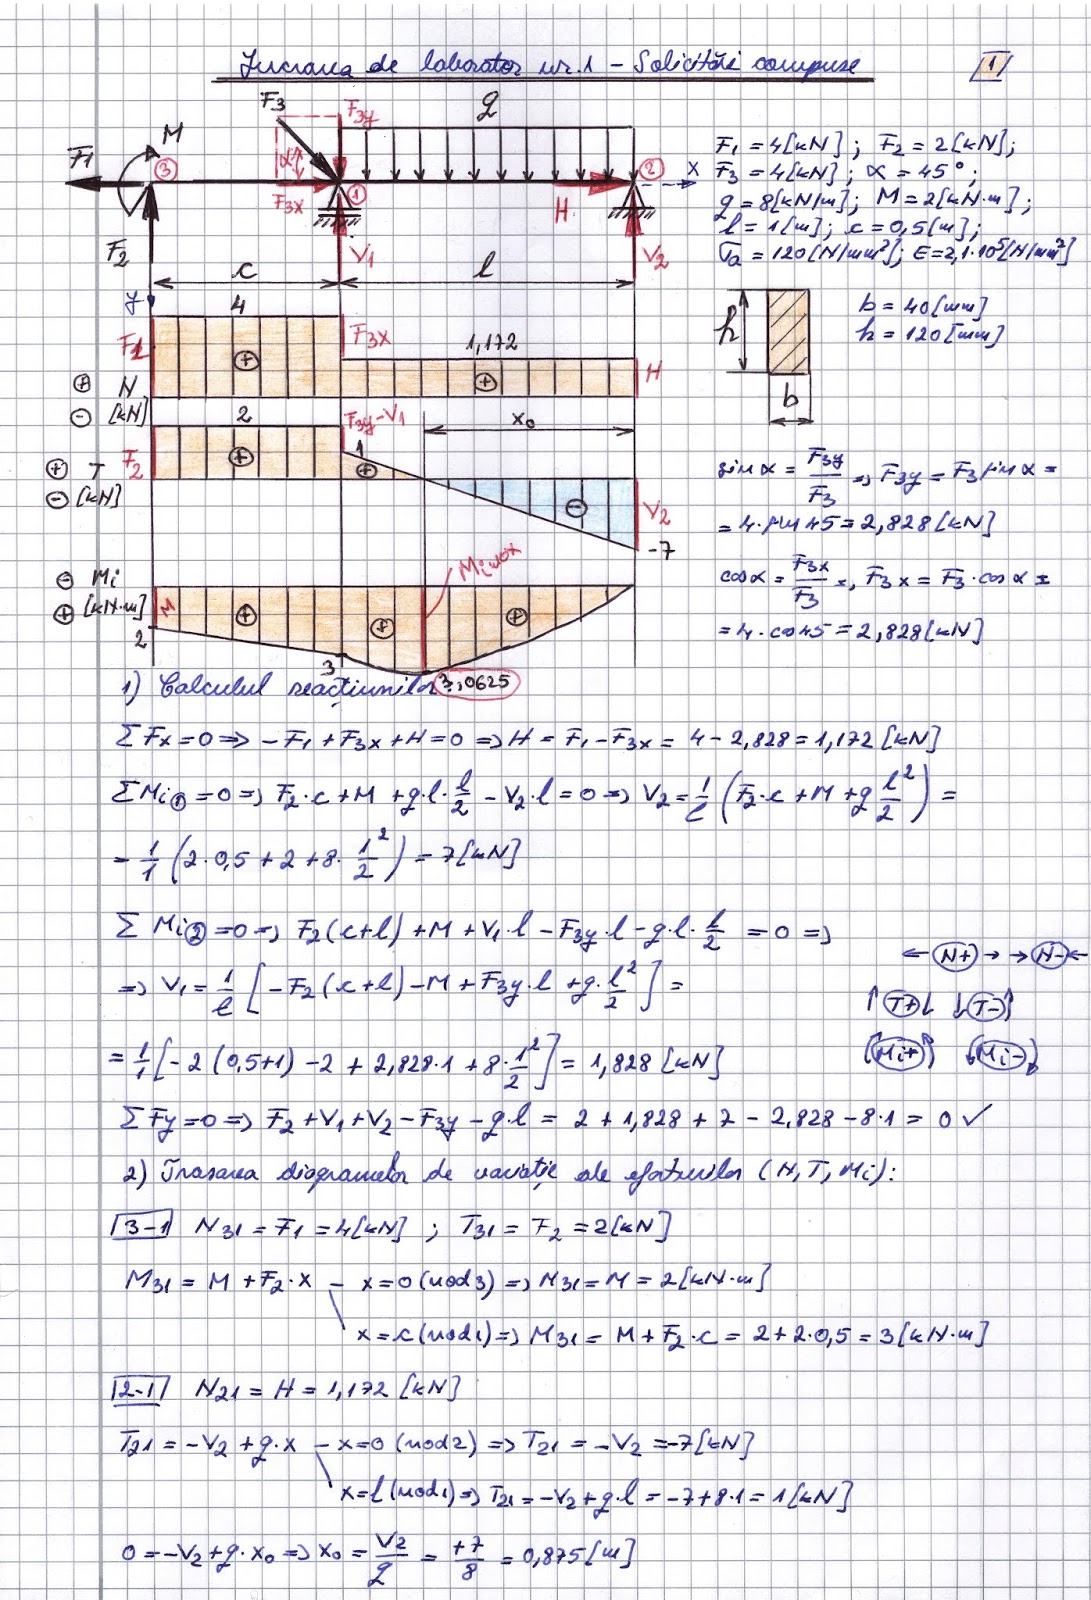 Lucrarea de laborator nr. 1 - Solicitări compuse
1
F3 F3y q
M
F1 3 α 1 2 x
F3x H
F2 V1 V2
c l
y
F1 = 4 [kN] ; F2 = 2 [kN];
F3 = 4 [kN] ; α = 45° ;
q = 8 [kN/m] ; M = 2 [kN·m] ;
l = 1 [m] ; c = 0,5 [m] ;
σa = 120 [N/mm²]; E = 2,1·10⁵ [N/mm²]
h b
b = 40 [mm]
h = 120 [mm]
4
F1 + F3x 1,172
+ N + H
- [kN]
2 F3y-V1 x0
F2 + 1 +
+ T
- [kN] - V2
-7
- Mi Mimax
+ [kN·m] M + + +
2 3 3,0625
sin α = F3y/F3 => F3y = F3 sin α =
= 4 · sin 45 = 2,828 [kN]
cos α = F3x/F3 => F3x = F3 · cos α =
= 4 · cos 45 = 2,828 [kN]
1) Calculul reacțiunilor
ΣFx = 0 => -F1 + F3x + H = 0 => H = F1 - F3x = 4 - 2,828 = 1,172 [kN]
ΣMi① = 0 => F2·c + M + q·l·l/2 - V2·l = 0 => V2 = 1/l (F2·c + M + q l²/2) =
= 1/1 (2·0,5 + 2 + 8·1²/2) = 7 [kN]
ΣMi② = 0 => F2(c+l) + M + V1·l - F3y·l - q·l·l/2 = 0 =>
=> V1 = 1/l [-F2(c+l) - M + F3y·l + q·l²/2] =
← N+ → → N- ←
↑ T+ ↓ ↓ T- ↑
Mi+ Mi-
= 1/1 [-2 (0,5+1) - 2 + 2,828·1 + 8·1²/2] = 1,828 [kN]
ΣFy = 0 => F2 + V1 + V2 - F3y - q·l = 2 + 1,828 + 7 - 2,828 - 8·1 = 0 ✓
2) Trasarea diagramelor de variație ale eforturilor (N, T, Mi):
3-1 N31 = F1 = 4 [kN] ; T31 = F2 = 2 [kN]
M31 = M + F2·x - x = 0 (nod 3) => M31 = M = 2 [kN·m]
x = c (nod 1) => M31 = M + F2·c = 2 + 2·0,5 = 3 [kN·m]
2-1 N21 = H = 1,172 [kN]
T21 = -V2 + q·x - x = 0 (nod 2) => T21 = -V2 = -7 [kN]
x = l (nod 1) => T21 = -V2 + q·l = -7 + 8·1 = 1 [kN]
0 = -V2 + q·x0 => x0 = V2/q = +7/8 = 0,875 [m]